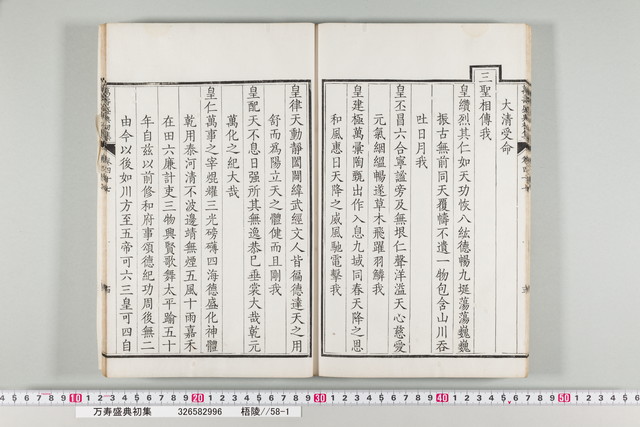 大清受命
三聖相傳我
皇纘烈其仁如天功恢八紘德暢九埏蕩蕩巍巍
振古無前同天覆幬不遺一物包含山川吞
吐日月我
皇丕昌六合寧謐旁及無垠仁聲洋溢天心慈愛
元氣絪縕暢遂草木飛躍羽鱗我
皇建極萬彙陶甄出作入息九域同春天降之恩
和風惠日天降之威風馳電擊我
皇律天動靜闔闢緯武經文人皆徧德達天之用
舒而為陽立天之體健而且剛我
皇配天不息日强所其無逸恭已垂裳大哉乾元
萬化之紀大哉
皇仁萬事之宰焜耀三光磅礡四海德盛化神體
乾用泰河清不波邊靖無煙五風十雨嘉禾
在田六廉計吏三物興賢歌舞太平踰五十
年自兹以前修和府事頌德紀功周後無二
由今以後如川方至五帝可六三皇可四自
10 20 30 40 50
万寿盛典初集 326582996 梧陵//58-1